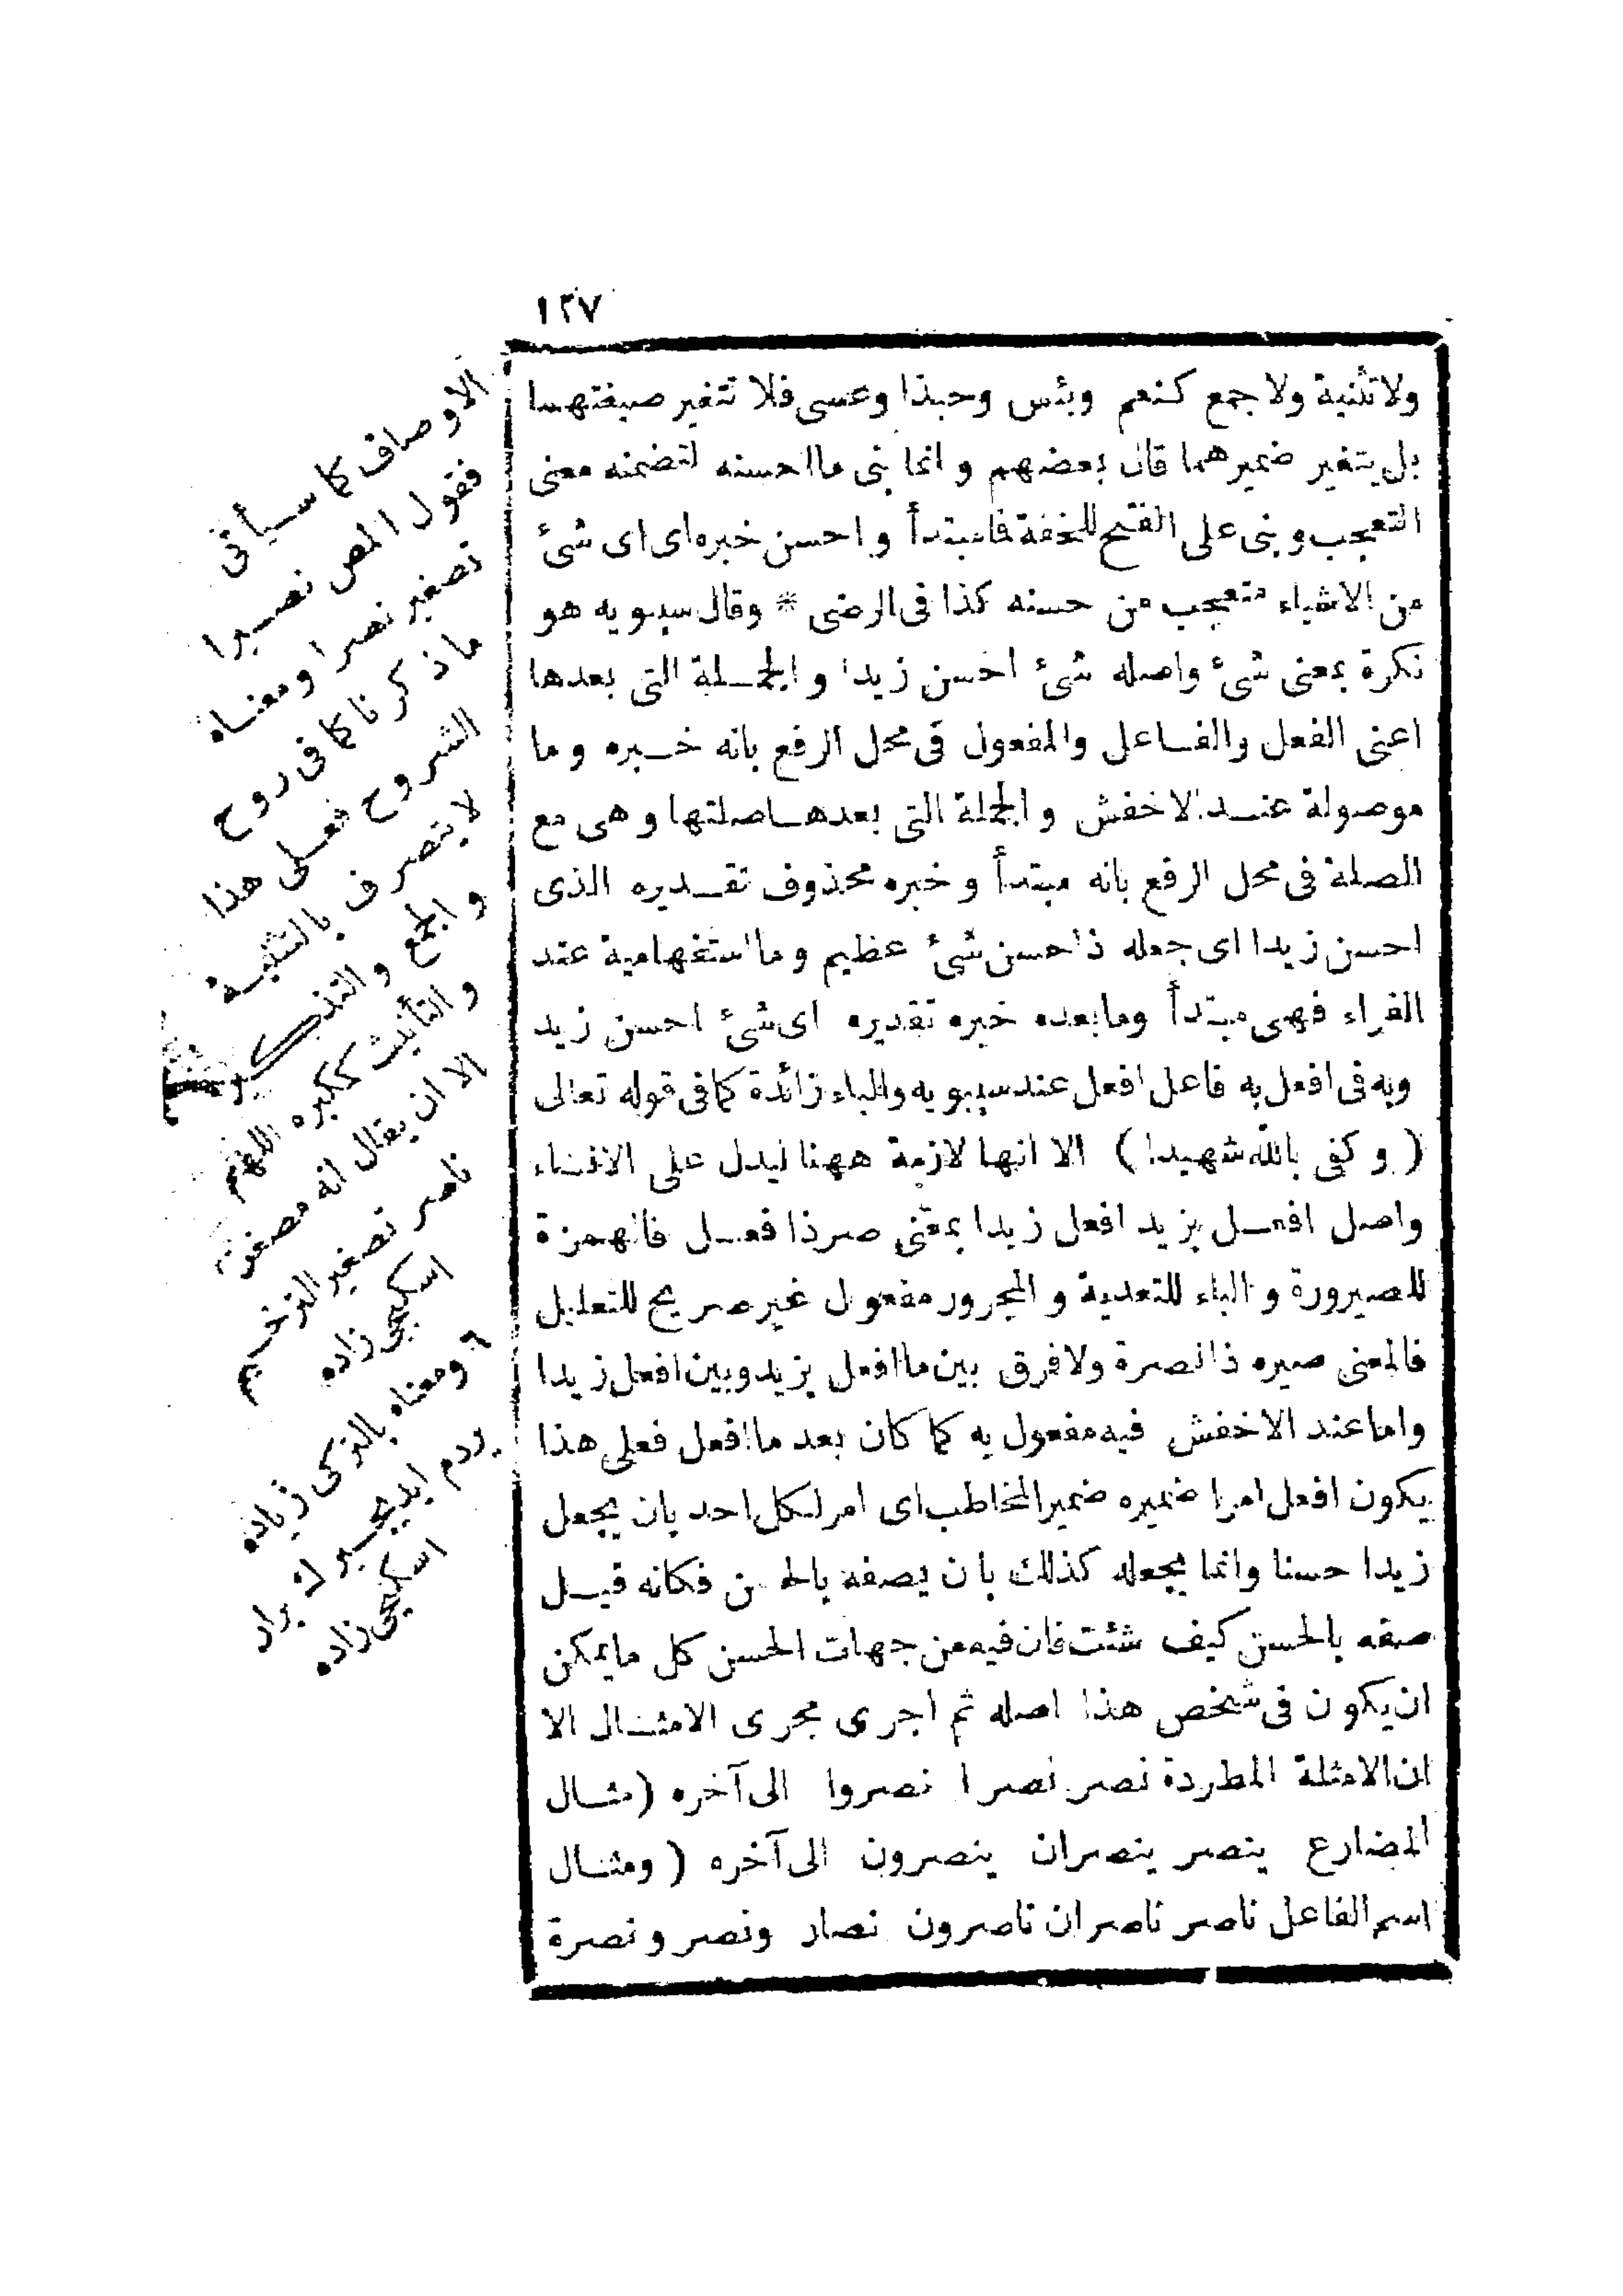 ١٣٧
ولا تثنية ولا جمع كنعم وبئس وحبذا وعسى فلا تتغير صيغتهما
بل يتغير ضميرهما قال بعضهم وانما بنى ما احسنه لتضمنه معنى
التعجب وبنى على الفتح للخفة فا مبتدأ واحسن خبره اى اى شئ
من الاشياء متعجب من حسنه كذا فى الرضى * وقال سيبويه هو
نكرة بمعنى شئ واصله شئ احسن زيدا والجملة التى بعدها
اعنى الفعل والفاعل والمفعول فى محل الرفع بانه خبره وما
موصولة عند الاخفش والجملة التى بعدها صلتها وهى مع
الصلة فى محل الرفع بانه مبتدأ وخبره محذوف تقديره الذى
احسن زيدا اى جعله ذا حسن شئ عظيم وما استفهامية عند
الفراء فهى مبتدأ وما بعده خبره تقديره اى شئ احسن زيد
وبه فى افعل به فاعل افعل عند سيبويه والباء زائدة كما فى قوله تعالى
( وكفى بالله شهيدا ) الا انها لازمة ههنا ليدل على الانشاء
واصل افعل بزيد افعل زيدا بمعنى صر ذا فعل فالهمزة
للصيرورة والباء للتعدية والمجرور مفعول غير صريح للتعليل
فالمعنى صيره ذا نصرة ولا فرق بين ما افعل بزيد وبين افعل زيدا
واما عند الاخفش فبه مفعول به كما كان بعد ما افعل فعلى هذا
يكون افعل امرا ضميره ضمير المخاطب اى امر لكل احد بان يجعل
زيدا حسنا وانما يجعله كذلك بان يصفه بالحسن فكانه قيل
صفه بالحسن كيف شئت فان فيه من جهات الحسن كل ما يمكن
ان يكون فى شخص هذا اصله ثم اجرى مجرى الامثال الا
ان الامثلة المطردة نصر نصرا نصروا الى آخره (مثال
المضارع ينصر ينصران ينصرون الى آخره ( ومثال
اسم الفاعل ناصر ناصران ناصرون نصار ونصر ونصرة
الاوصاف كما سيأتى
فقول المص نصيرا
تصغير نصرا ومعناه
ما ذكرنا كما فى روح
الشروح فعلى هذا
لا يتصرف بالتثنية
والجمع والتذكير
والتأنيث ككبره اللهم
الا ان يقال انه مصغر
ناصر تصغير الترخيم
اسكيجى زاده
٦ ومعناه بالتركى زياده
يردم ايديجيرك برار
اسكيجى زاده